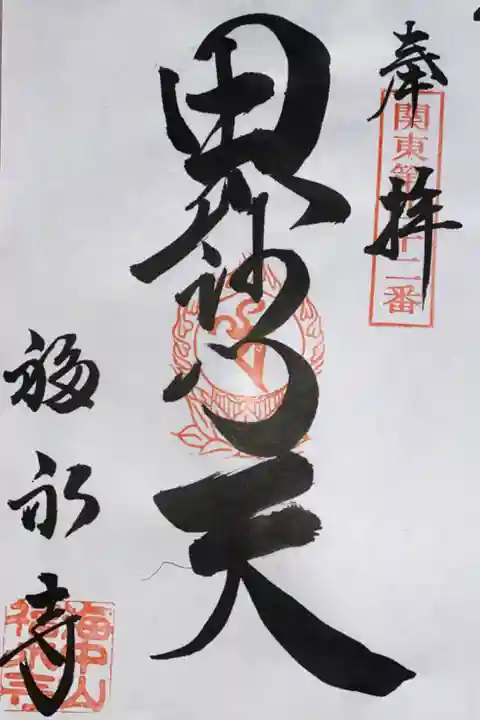 奉拝
関東第十二番
毘沙門天
福永寺
海中山
福永寺